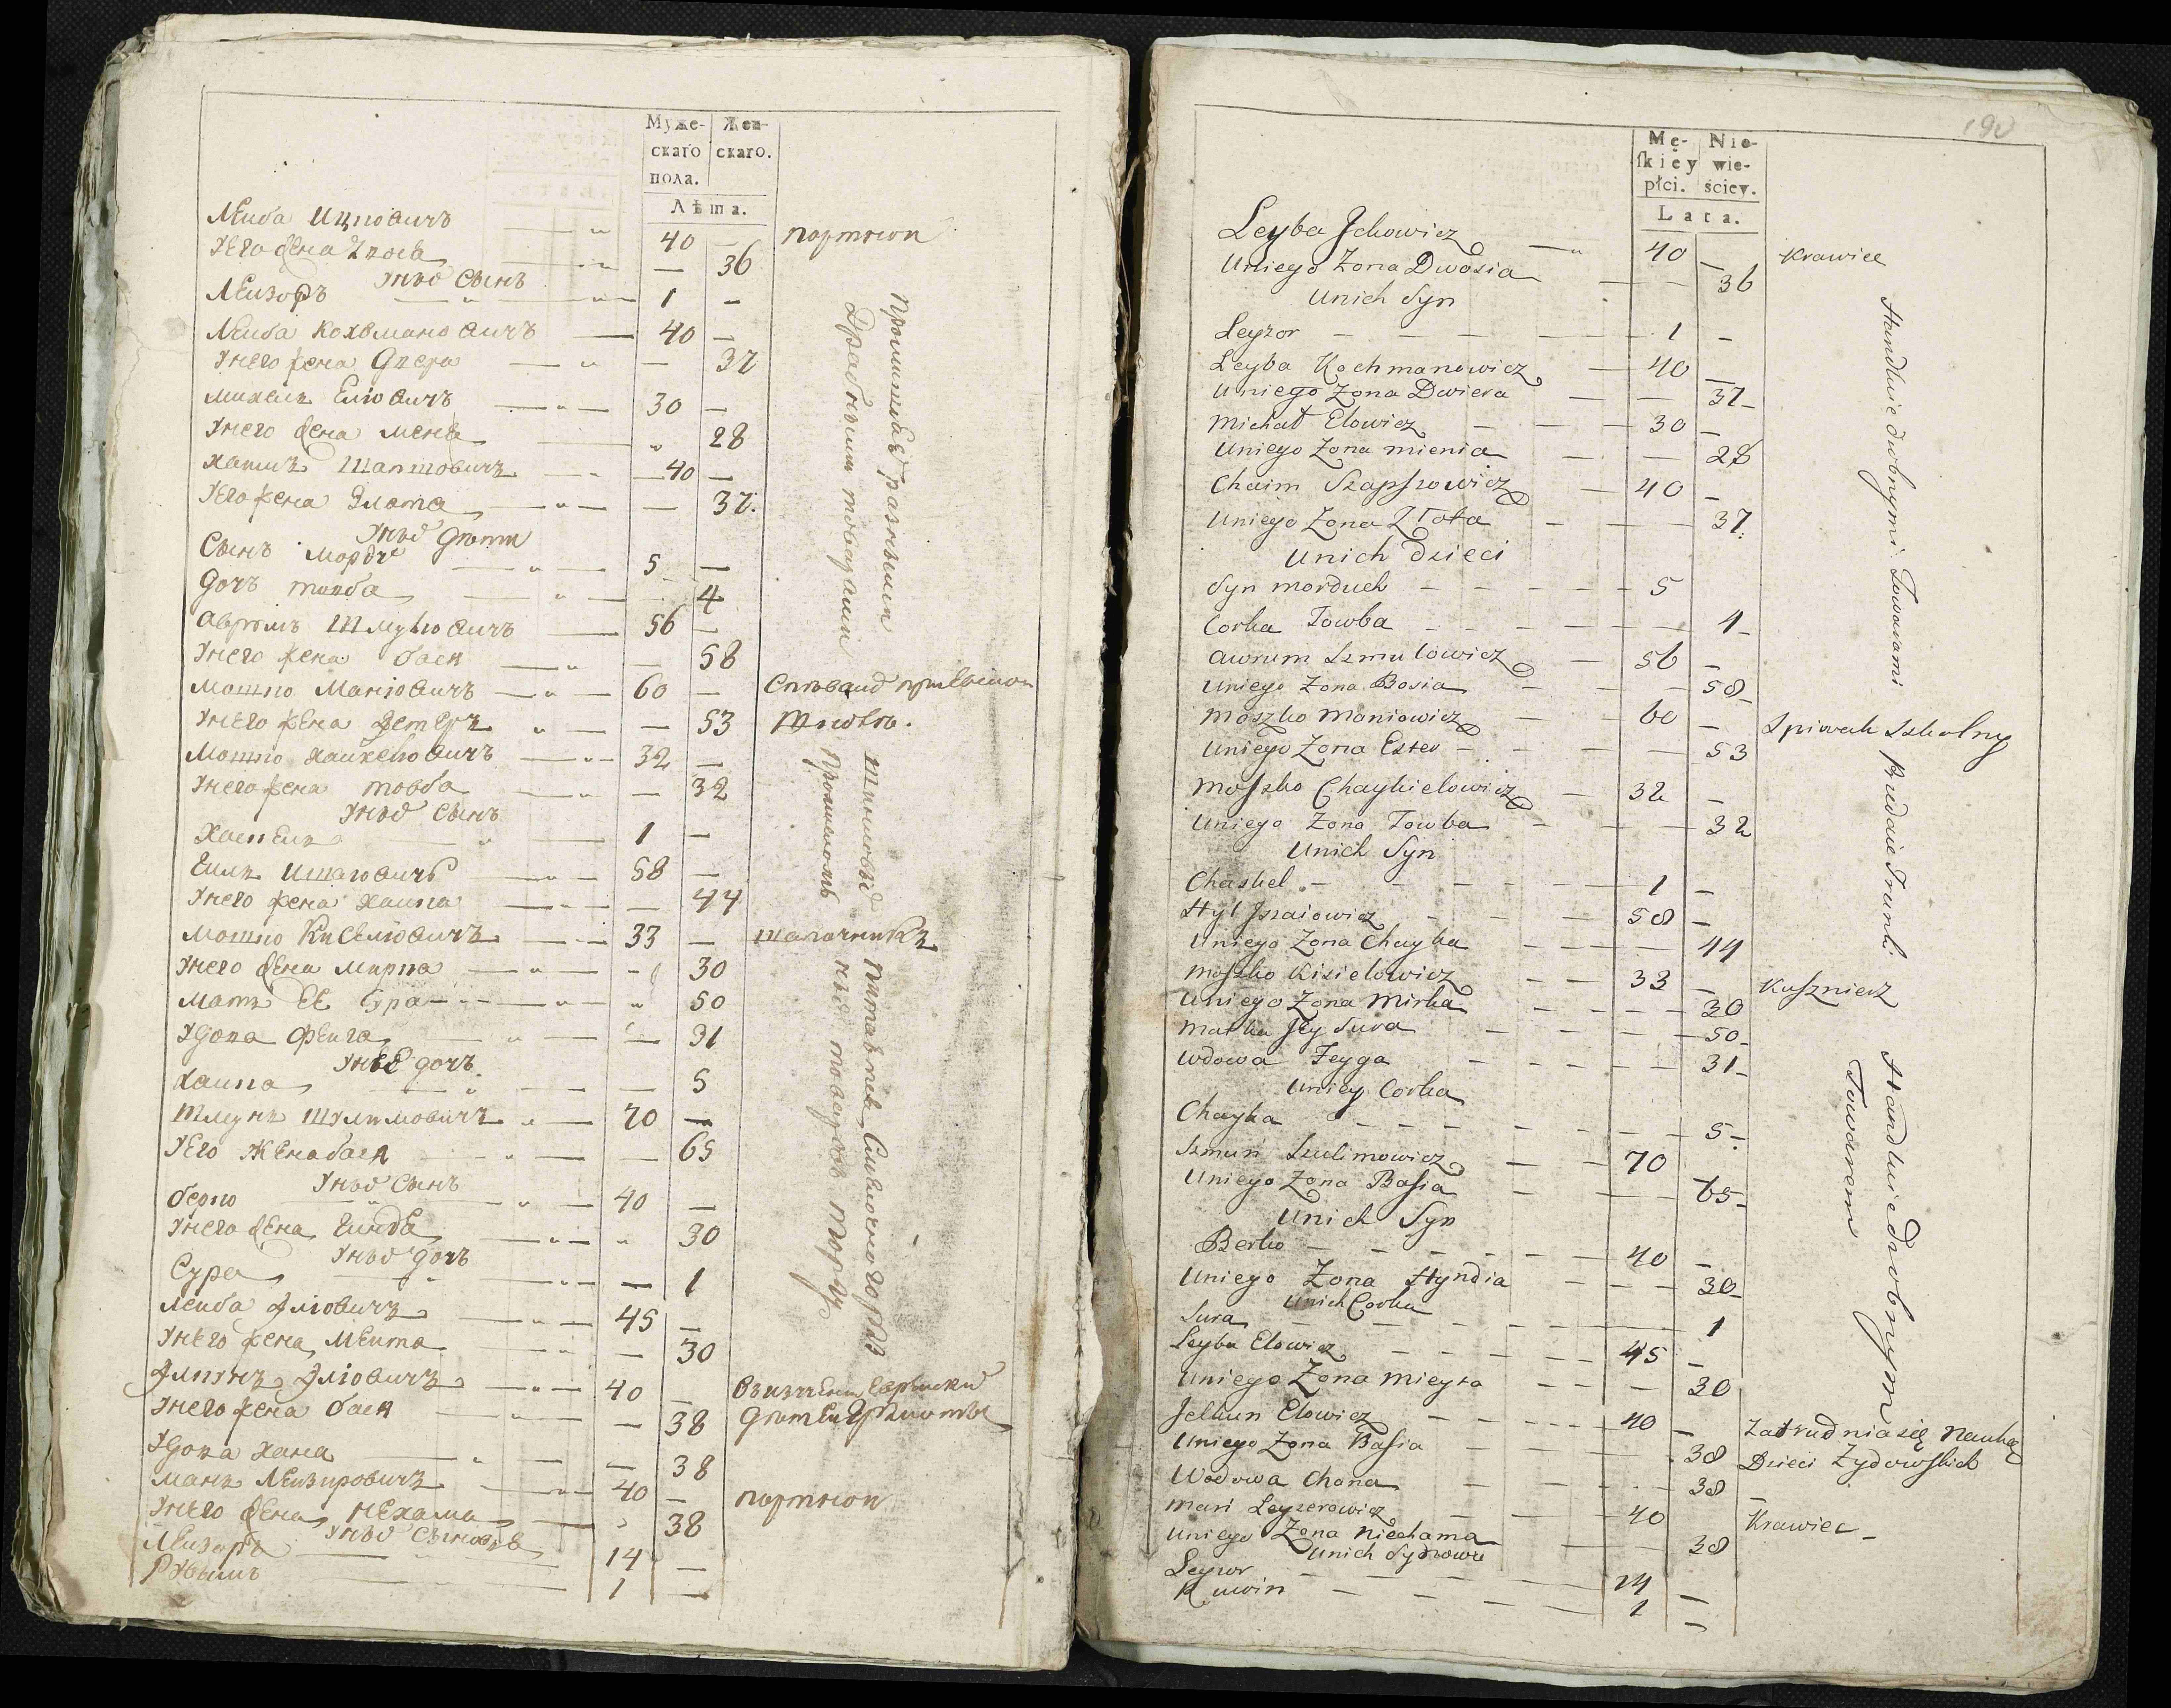 Муже- Жен-
скаго скаго.
пола.
Лѣта.
Леиба Ицковичъ 40 — портнои
36
Унихъ Сынъ
Леизоръ 1 —
Леиба Кохмановичъ — 40 —
Унего жена — 37
Михель Елiовичъ 30 —
Унего жена Меня 28
Хаимъ Шапшовичъ 40 —
Его жена Злота — 37.
Унихъ дѣти
Сынъ Мордух 5 —
Дочъ товба 4
Аврумъ Шмулiовичъ 56 —
Унего жена бася — 58
Мошко Манiовичъ 60 —
Унего жена Эстеръ — 53 школѣ.
Мошко Хаикелiовичъ 32 —
Унего жена товба — 32
Унихъ Сынъ
Хаскель 1 —
Гиль Ишаiовичъ 58 —
Унего жена Хаика — 44
Мошко Кисѣлiовичъ 33 — шапочникъ
Унего жена Мирка — 30
Мать Её Сура 50
Удова Феига 31
Унеё дочъ
Хаика — 5
Шмунъ Шулимовичъ 70 —
Его Жена бася — 65
Унихъ Сынъ
берко 40 —
Унего жена Гиндя 30
Унихъ дочъ
Сура — 1
Леиба Элiовичъ 45 —
Унего жена Меита — 30
Элiовичъ 40 —
Унего жена бася — 38
Удова Хана — 38
Манъ Леизировичъ 40 — портнои
Унего жена Нехама 38
Унихъ Сыновья
Леизоръ 14 —
Рувинъ 1 —
190
Mę- Nie-
skiéy wie-
płci. ściey.
Lata.
Leyba Jckowicz — 40 — Krawiec
Uniego Zona Dwosia — 36
Unich Syn
Leyzor — 1 —
Leyba Kochmanowicz — 40 —
Uniego Zona Dwiera — 37
Michał Elowicz — 30 —
Uniego Zona mienia — 28
Chaim Szapszowicz — 40 —
Uniego Zona Złota — 37.
Unich Dzieci
Syn morduch — 5
Corka Towba — 4
awrum Szmulowicz — 56 —
Uniego Zona Bosia — 58
Moszko Maniowicz — 60 — Spiwak Szkolny
Uniego Zona Ester — 53
Moszko Chaykielowicz — 32 —
Uniego Zona Towba — 32
Unich Syn
Chaskel — 1 —
Hyl Jszaiowicz — 58 —
Uniego Zona Chayka — 44
Moszko Kisielowicz — 33 — Kuszniesz
Uniego Zona Mirka — 30
Matka Jey Sura — 50
Wdowa Feyga — 31
Uniey Corka
Chayka — 5
Szmuń Szulimowicz — 70
Uniego Zona Basia — 65
Unich Syn
Berko — 40 —
Uniego Zona Hyndia — 30
Unich Corka
Sura — 1
Leyba Elowicz — 45 —
Uniego Zona Mieyta — 30
Jelkun Elowicz — 40 — Zatrudnia się Nauką
Uniego Zona Basia — 38 Dzieci Zydowskich
Wdowa Chana — 38
Mań Leyzerowicz — 40 Krawiec
Uniego Zona Niechama — 38
Unich Synowie
Leyzor — 14 —
Ruwin — 1 —
Handluie drobnymi Towarami
Przedaie Trunki
Handluie drobnym
Towarem